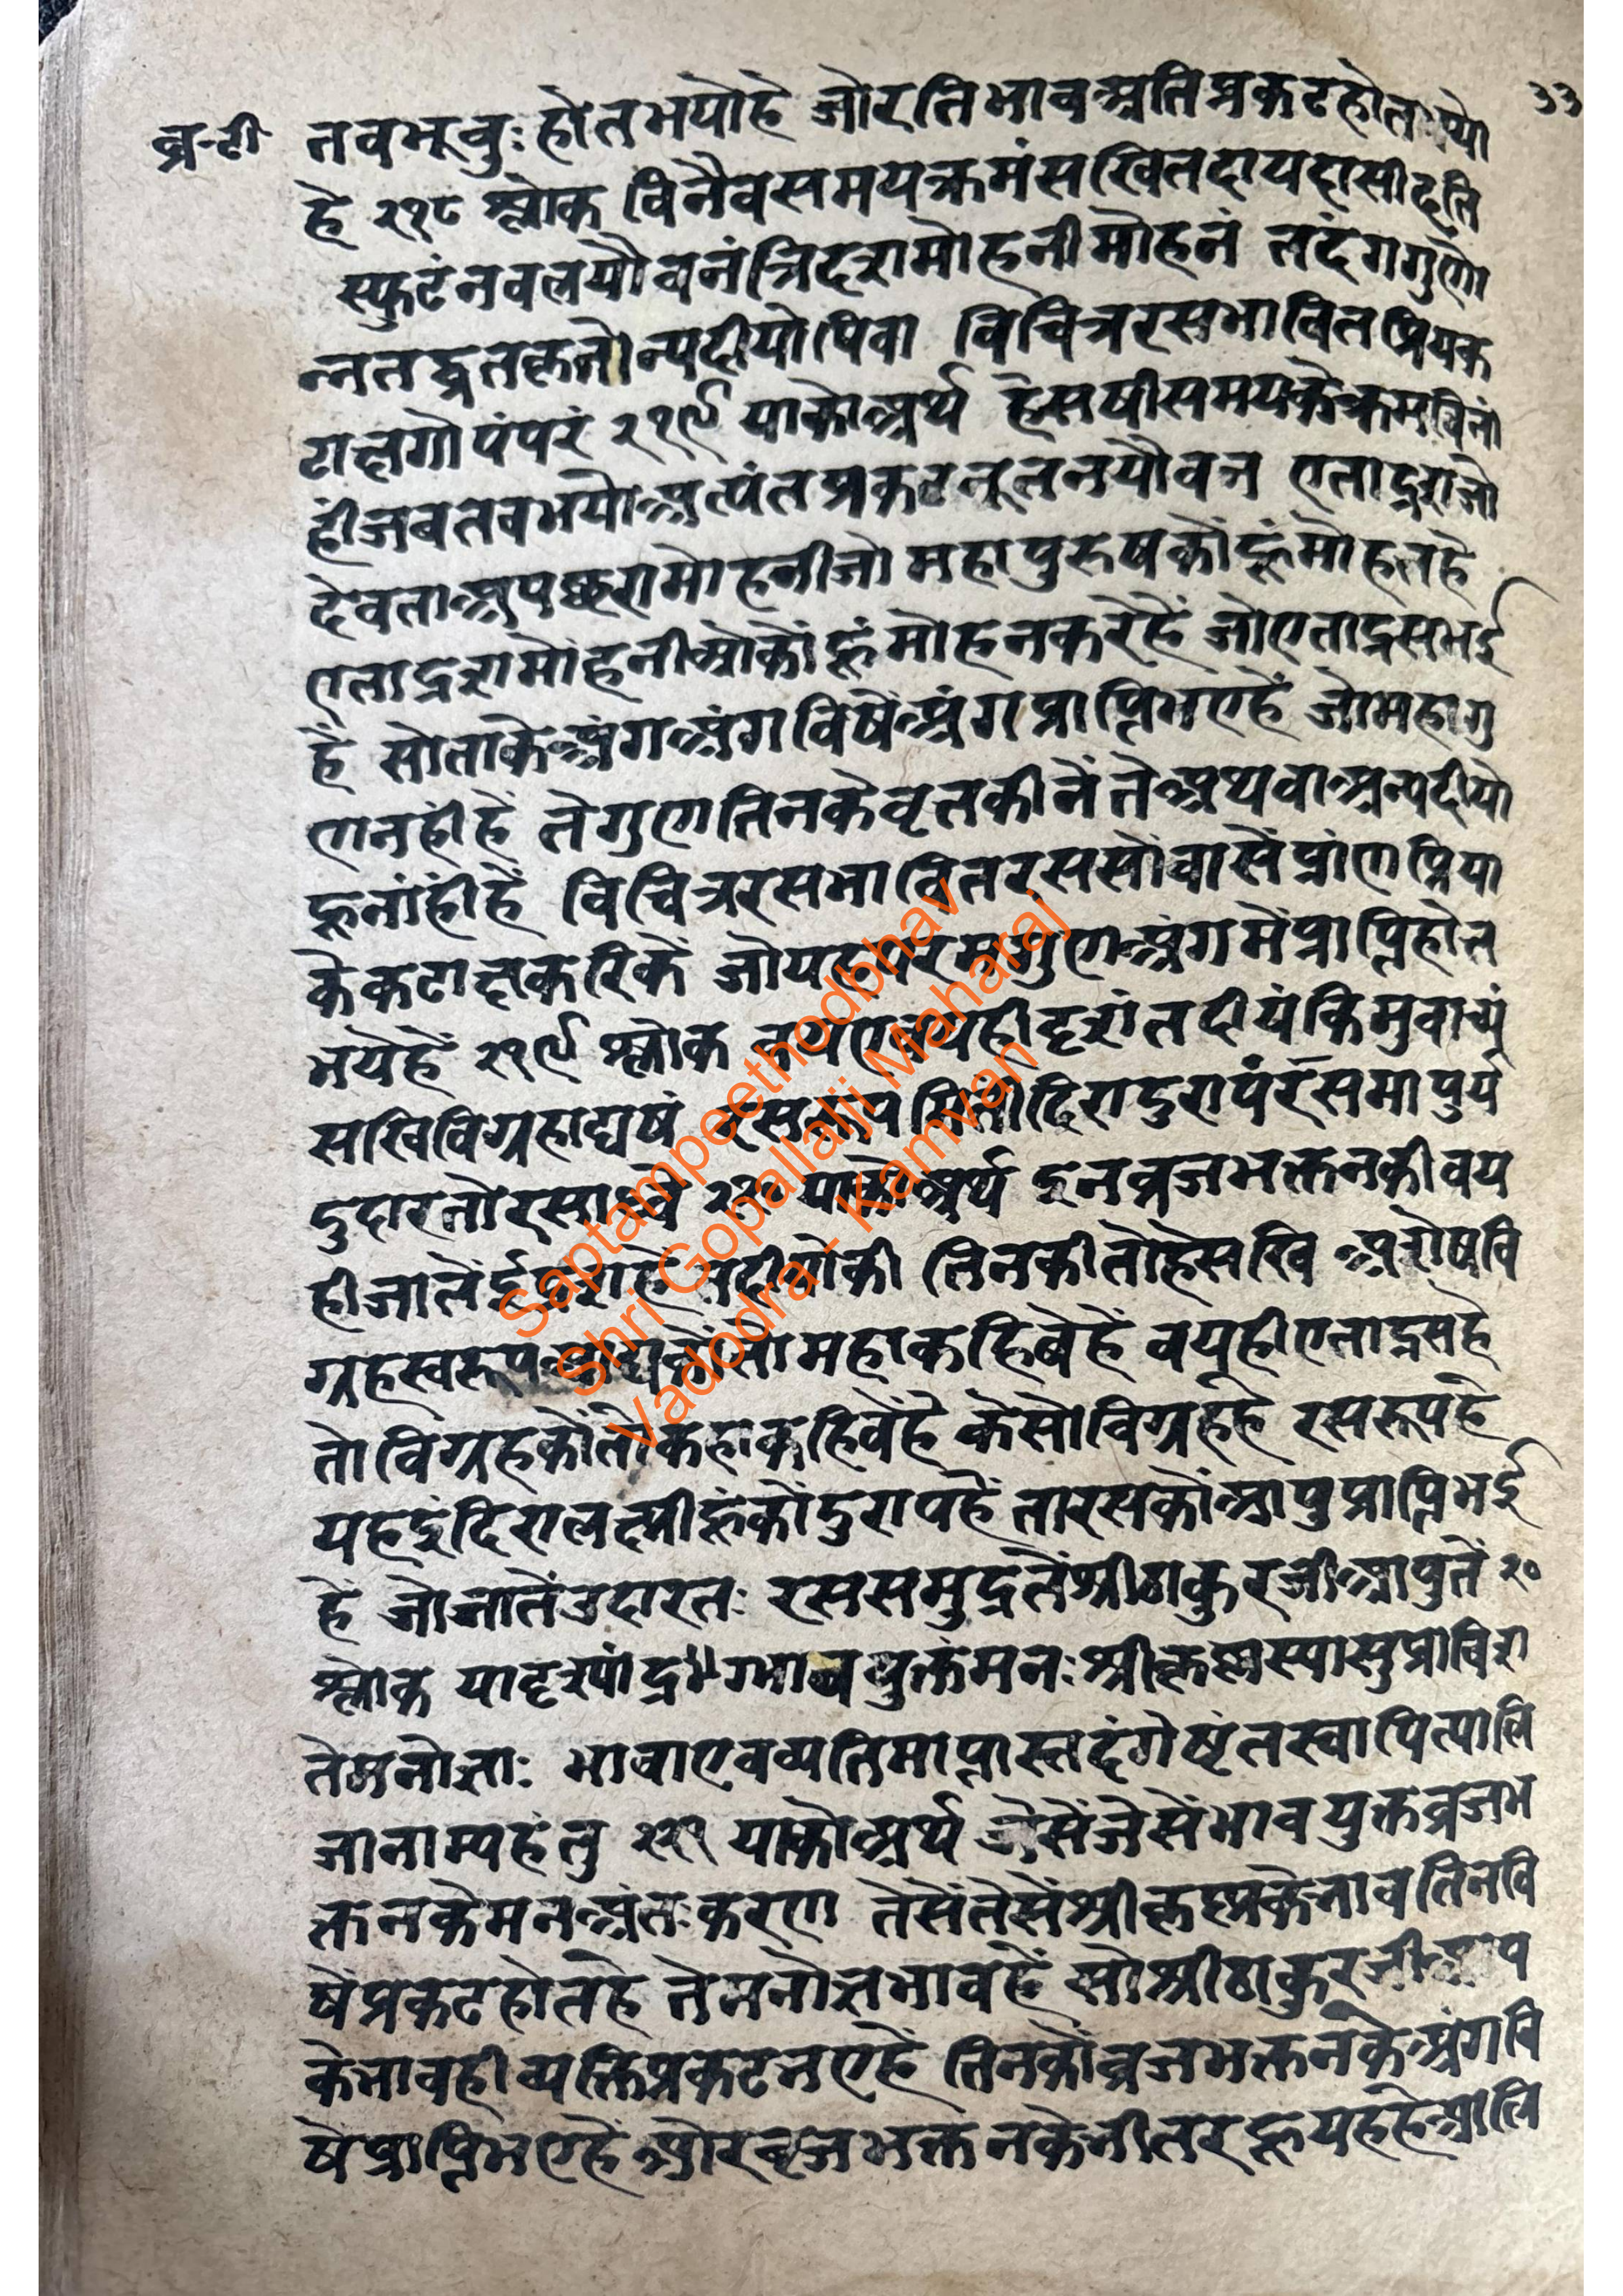 ३३
व्र-टी तवभूवुः होतभयोहै जोरतिभावअतिप्रकटहोतभयो
है २१८ श्लोक विनैवसमयक्रमंसखितदायदासीदति
स्फुटंनवलयौवनंत्रिदशमोहनीमोहनं तदंगगुणो
न्नतद्व्रतकृतोन्यदीयोपिवा विचित्ररसभावितप्रियक
टाक्षगोपंपरं २१९ याकोअर्थ हेसषीसमयकेक्रमविनां
हीजबतवभयोअत्यंतप्रकटनूतनयौवन एताद्रशजो
देवताअपछरामोहनीजो महापुरुषकौंहूंमोहतहै
एताद्रशमोंहनीओकौंहूंमोहनकरेहैं जोएताद्रसभई
हैं सोताकेअंगअंगविषैंअंगप्राप्तिभएहैं जोमहागु
णनहींहैं तेगुणतिनकेवृतकीनेंतेअथवाअन्यदीयो
हूनांहींहैं विचित्ररसभावितरससोंवासैंप्रांणप्रिया
केकटाक्षकरिकें जोयहपरमगुणअंगमेंप्राप्तिहोत
भयेहैं २१९ श्लोक वयएवयहीदृशंतदीयंकिमुवाच्यं
सखिविग्रहाद्यषं रसरूपमितींदिरादुरापंरसमापुर्य
दुदारतोरसाब्धे २२० याकोअर्थ इनव्रजभक्तनकीवय
हीजातेंईद्रशहैतदीयोकी तिनकीतोहेसखि अशेषवि
ग्रहस्वरूपआद्यकौंसोमहाकहिवेहैं वयहीएताद्रसहै
तोविग्रहकौंतोकहाकहिवेंहै केसोविग्रहहै रसरूपहै
यहइंदिरालक्ष्मीहूंकोंदुरापहैं तारसकौंआपुप्राप्तिभई
हैं जोजातेंउदारतः रससमुद्रतेंश्रीठाकुरजीआपुतें २०
श्लोक यादृश्यांद्र॥ग्भावयुक्तंमनः श्रीकृष्णस्यासुप्राविश
तेमनोज्ञाः भावाएवव्यतिमाप्तास्तदंगेषृंतस्वापित्यालि
जानाम्यहंतु २२१ याकोअर्थ जेसेंजेसेंभावयुक्तव्रजभ
क्तनकेमनअंतःकरण तेसेंतेसेंश्रीकृष्णकेभावतिनवि
षेंप्रकटहोतहै तेमनोज्ञभावहैं सोश्रीठाकुरजीआप
केभावहीव्यक्तिप्रकटभएहैं तिनकौंव्रजभक्तनकेअंगवि
षेप्राप्तिभएहैं ओरवृजभक्तनकेभीतरहूयहहेआलि
Saptampeethodbhav
Shri Gopallalji Maharaj
Vadodra - Kamvan